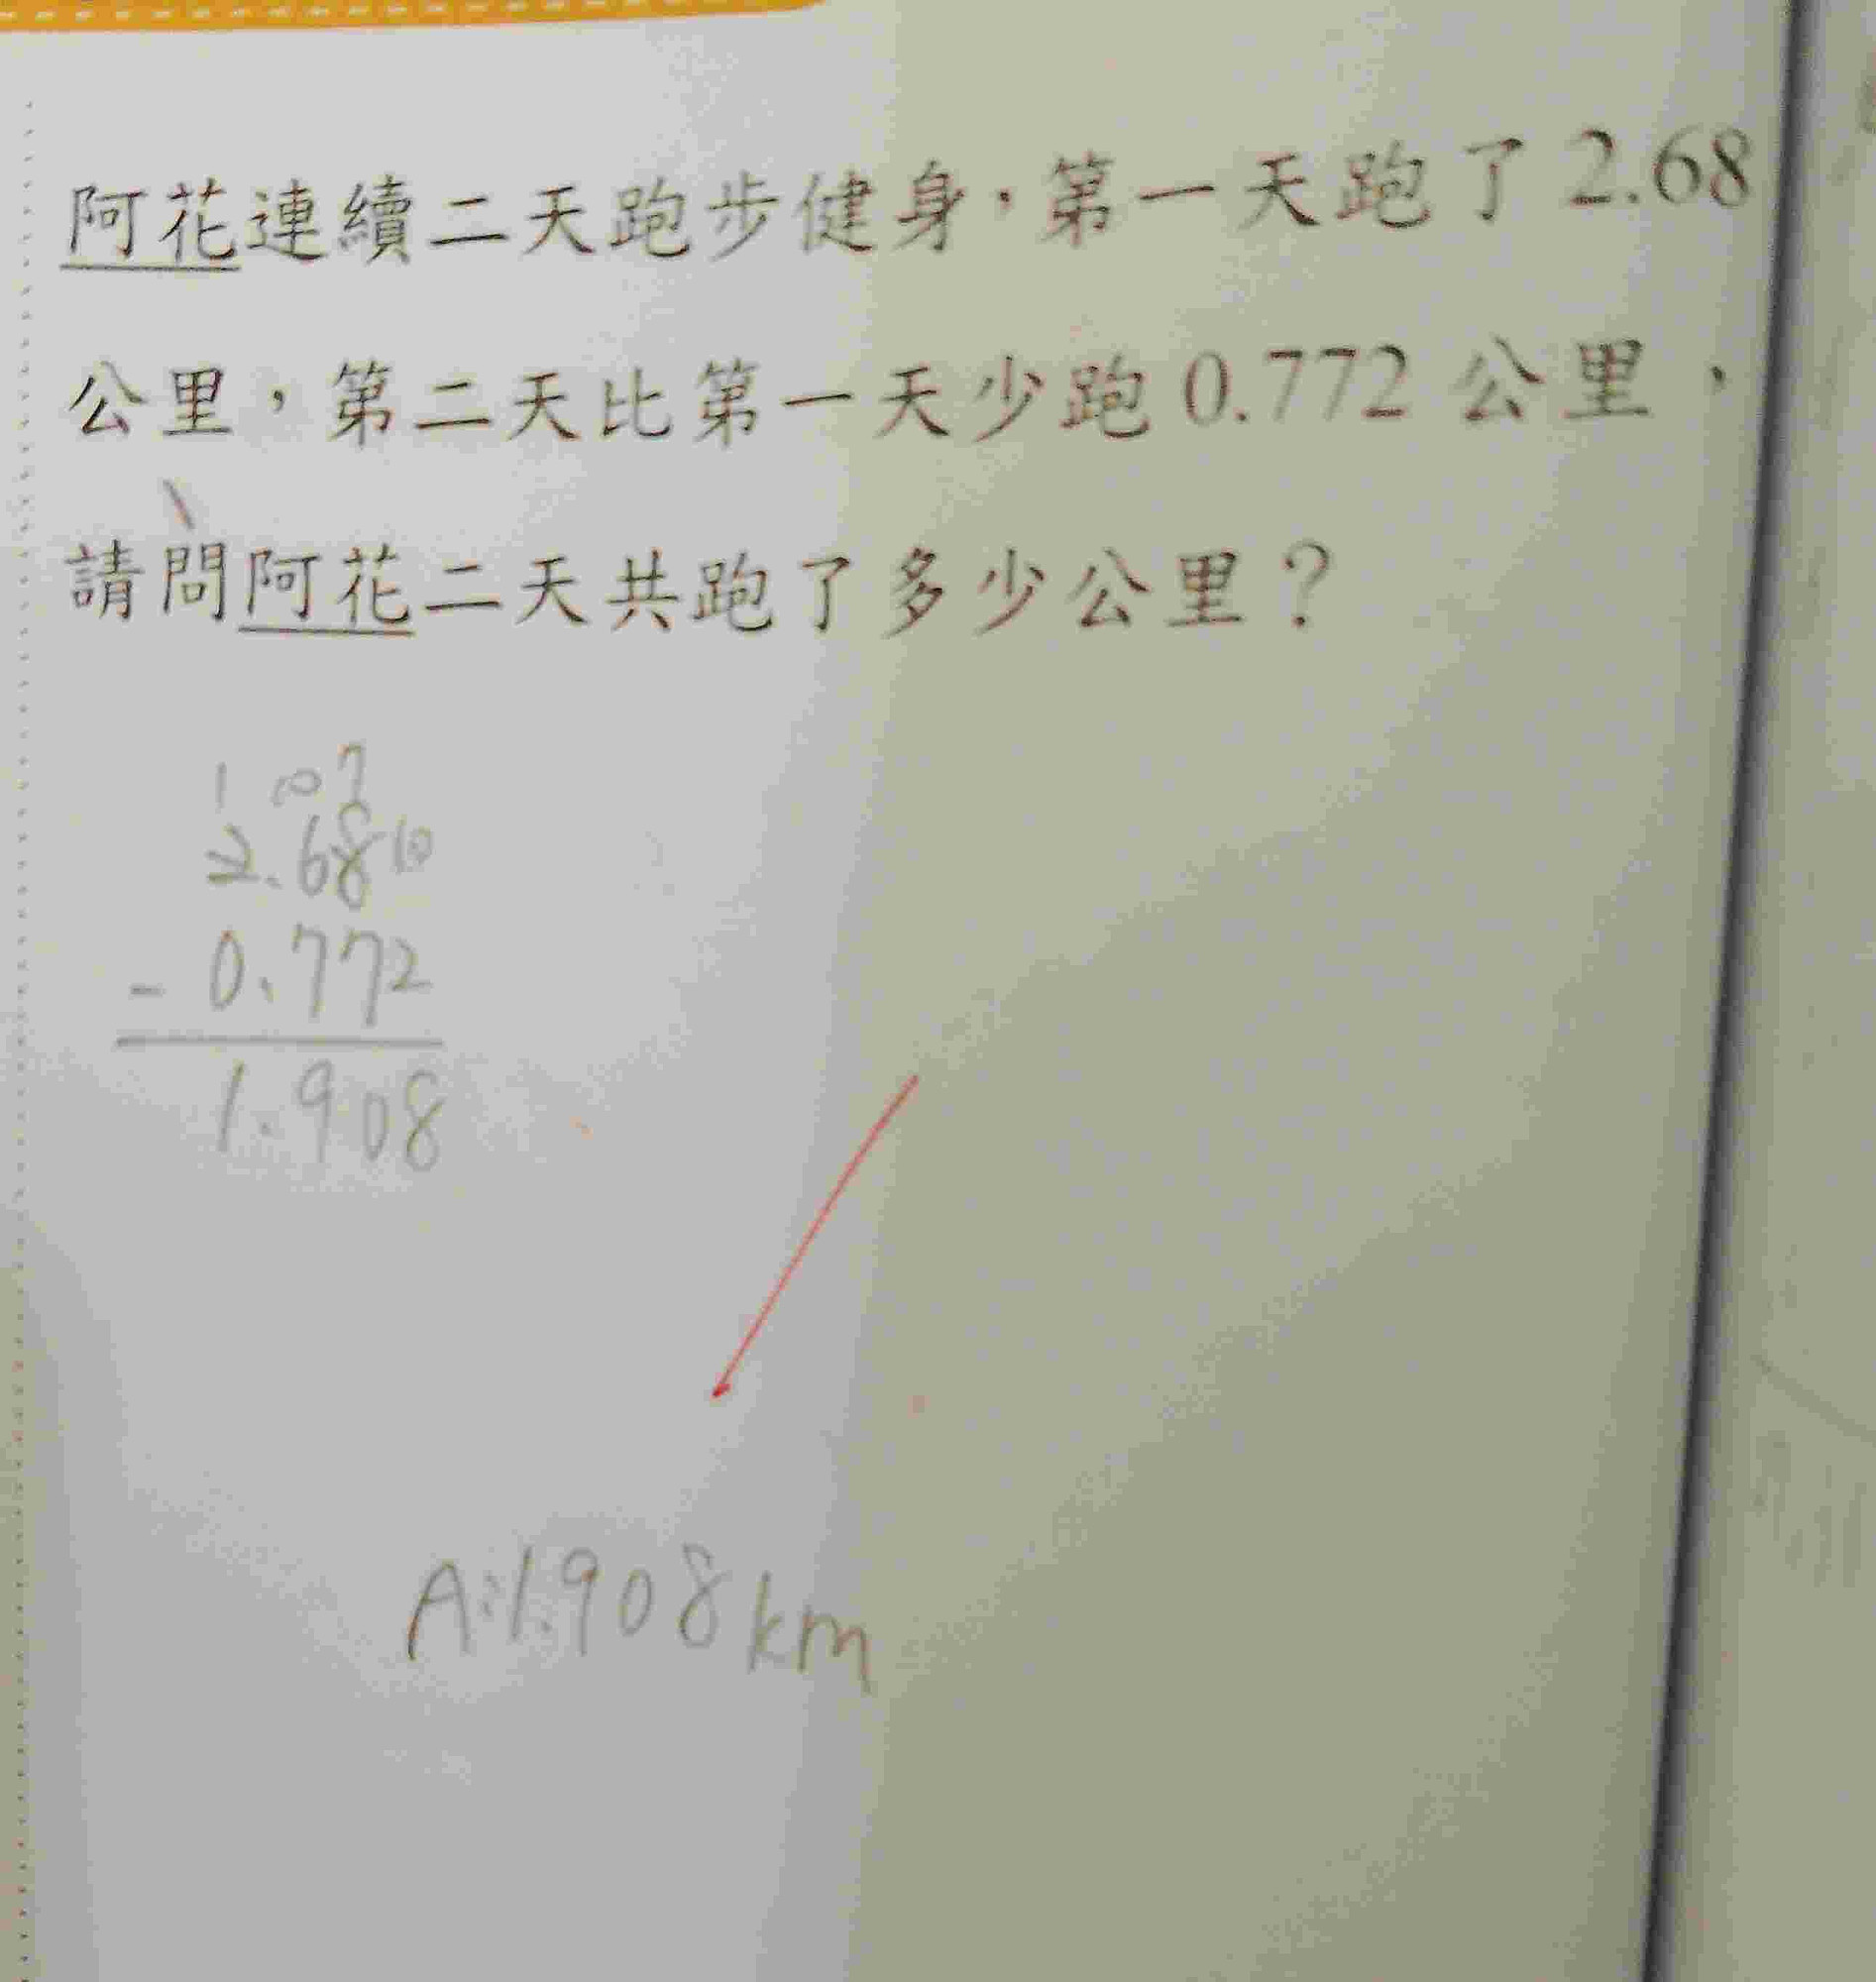 阿花連續二天跑步健身，第一天跑了 2.68
公里，第二天比第一天少跑 0.772 公里，
請問阿花二天共跑了多少公里？
1 10 7
2.68 10
- 0.772
1.908
A:1.908km